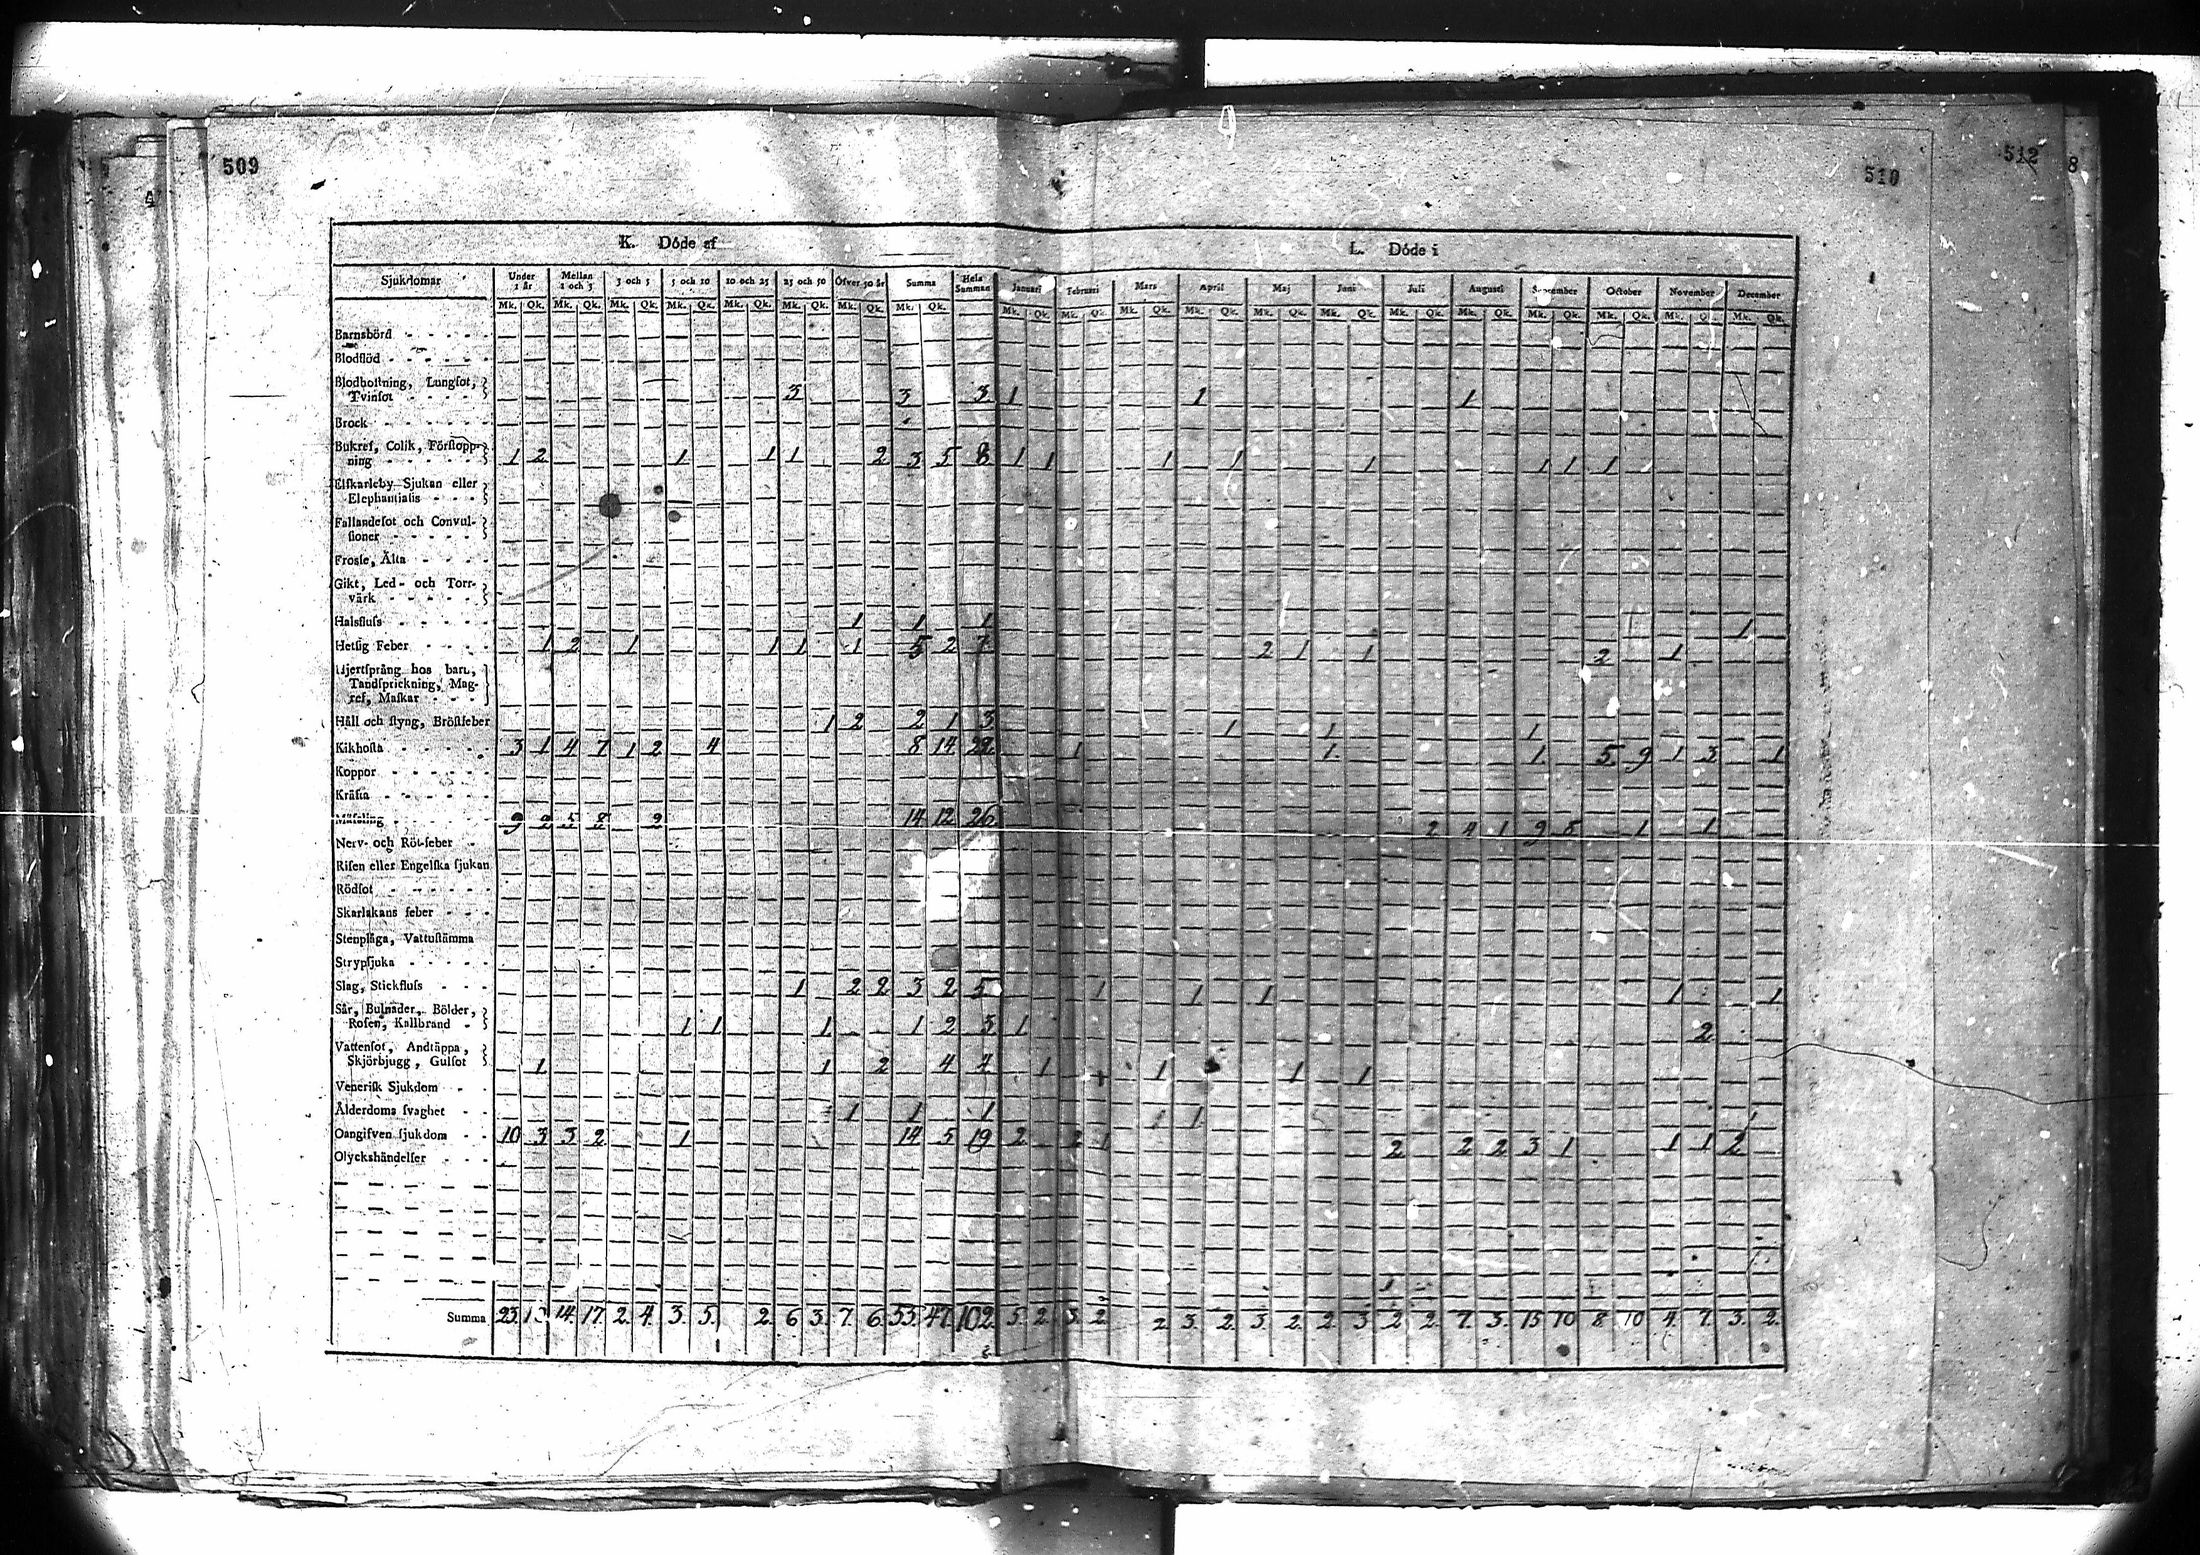 509
510
512
8
K. Döde af
L. Döde i
Sjukdomar Under 1 år Mellan 1 och 3 3 och 5 5 och 10 10 och 25 25 och 50 Öfver 50 år Summa Hela Summan Januari Februari Mars April Maj Juni Juli Augusti September October November December
Mk. Qk. Mk. Qk. Mk. Qk. Mk. Qk. Mk. Qk. Mk. Qk. Mk. Qk. Mk. Qk. Mk. Qk. Mk. Qk. Mk. Qk. Mk. Qk. Mk. Qk. Mk. Qk. Mk. Qk. Mk. Qk. Mk. Qk. Mk. Qk. Mk. Qk. Mk. Qk.
Barnsbörd
Blodflöd
Blodhostning, Lungsot,
Tvinsot 3 3 3 1 1 1
Brock
Bukref, Colik, Förstopp-
ning 1 2 1 1 1 2 3 5 8 1 1 1 1 1 1 1 1
Elfkarleby Sjukan eller
Elephantiasis
Fallandesot och Convul-
sioner
Frossa, Älta
Gikt, Led- och Torr-
värk
Halsfluss 1 1 1 1
Hetsig Feber 1 2 1 1 1 1 5 2 7 2 1 1 2 1
Hjertsprång hos barn,
Tandsprickning, Mag-
ref, Maskar
Håll och styng, Bröstfeber 1 2 2 1 3 1 1 1
Kikhosta 3 1 4 7 1 2 4 8 14 22 1 1 1 5 9 1 3 1
Koppor
Kräfta
Mässling 9 2 5 8 2 14 12 26 2 4 1 9 8 1 1
Nerv- och Röt-feber
Risen eller Engelska sjukan
Rödsot
Skarlakans feber
Stenplåga, Vattustämma
Strypsjuka
Slag, Stickfluss 1 2 2 3 2 5 1 1 1 1 1
Sår, Bulnader, Bölder,
Rosen, Kallbrand 1 1 1 1 2 3 1 2
Vattensot, Andtäppa,
Skjörbjugg, Gulsot 1 1 2 4 7 1 1 1 1
Venerisk Sjukdom
Ålderdoms svaghet 1 1 1 1
Oangifven sjukdom 10 3 3 2 1 14 5 19 2 2 1 2 2 2 3 1 1 1 2
Olyckshändelser
Summa 23. 14. 17. 2. 4. 3. 5. 2. 6 3. 7. 6. 53. 47. 102. 5. 2. 3. 2. 2 3. 2. 3. 2. 2. 3 2 2. 7. 3. 13 10 8 10 4. 7. 3. 2.